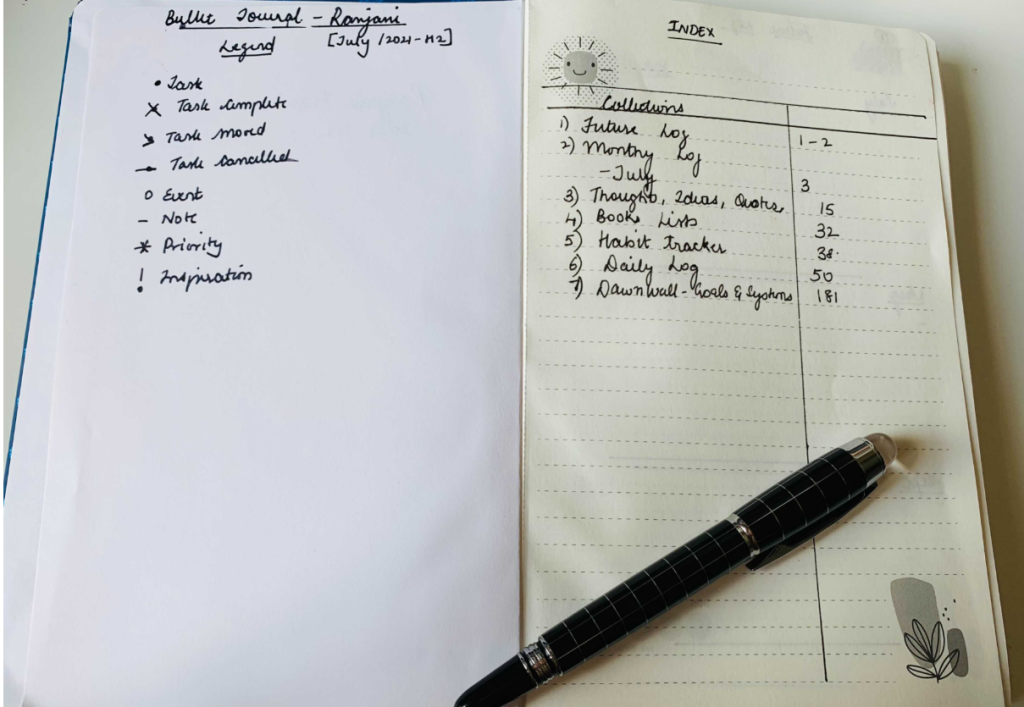 Bullet Journal - Ranjani
Legend [July /2021 - H2]
• Task
x Task Complete
> Task moved
Task Cancelled
o Event
- Note
* Priority
! Inspiration
INDEX
Collections
1) Future Log 1-2
2) Monthy Log
- July 3
3) Thoughts, Ideas, Quotes 15
4) Books Lists 32
5) Habit Tracker 38
6) Daily Log 50
7) Dawnwall - Goals & Systems 181